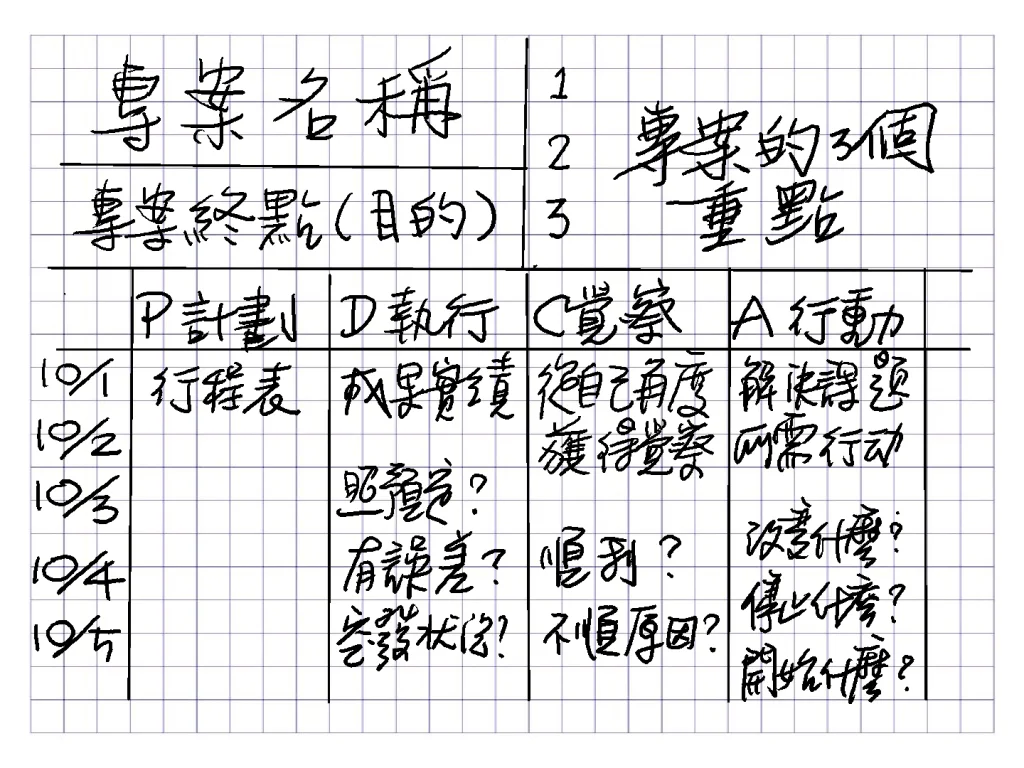 專案名稱
專案終點(目的)
1
2
3
專案的3個
重點
P計劃
D執行
C覺察
A行動
10/1
10/2
10/3
10/4
10/5
行程表
成果實績
照預定?
有誤差?
突發狀況?
從自己角度
獲得覺察
順利?
不順原因?
解決課題
所需行动
改善什麼?
停止什麼?
開始什麼?